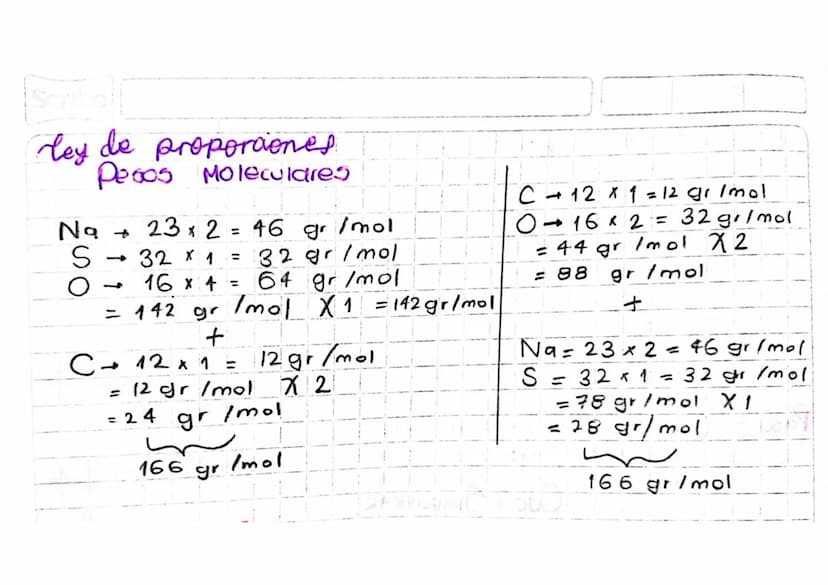 Ley de proporciones
Pesos Moleculares
Na → 23 x 2 = 46 gr /mol
S → 32 x 1 = 32 gr /mol
O → 16 x 4 = 64 gr /mol
= 142 gr /mol X 1 = 142 gr/mol
+
C → 12 x 1 = 12 gr /mol
= 12 gr /mol X 2
= 24 gr /mol
166 gr /mol
C → 12 x 1 = 12 gr /mol
O → 16 x 2 = 32 gr/mol
= 44 gr /mol X 2
= 88 gr /mol
+
Na = 23 x 2 = 46 gr /mol
S = 32 x 1 = 32 gr /mol
= 78 gr /mol X 1
= 28 gr/mol
166 gr /mol